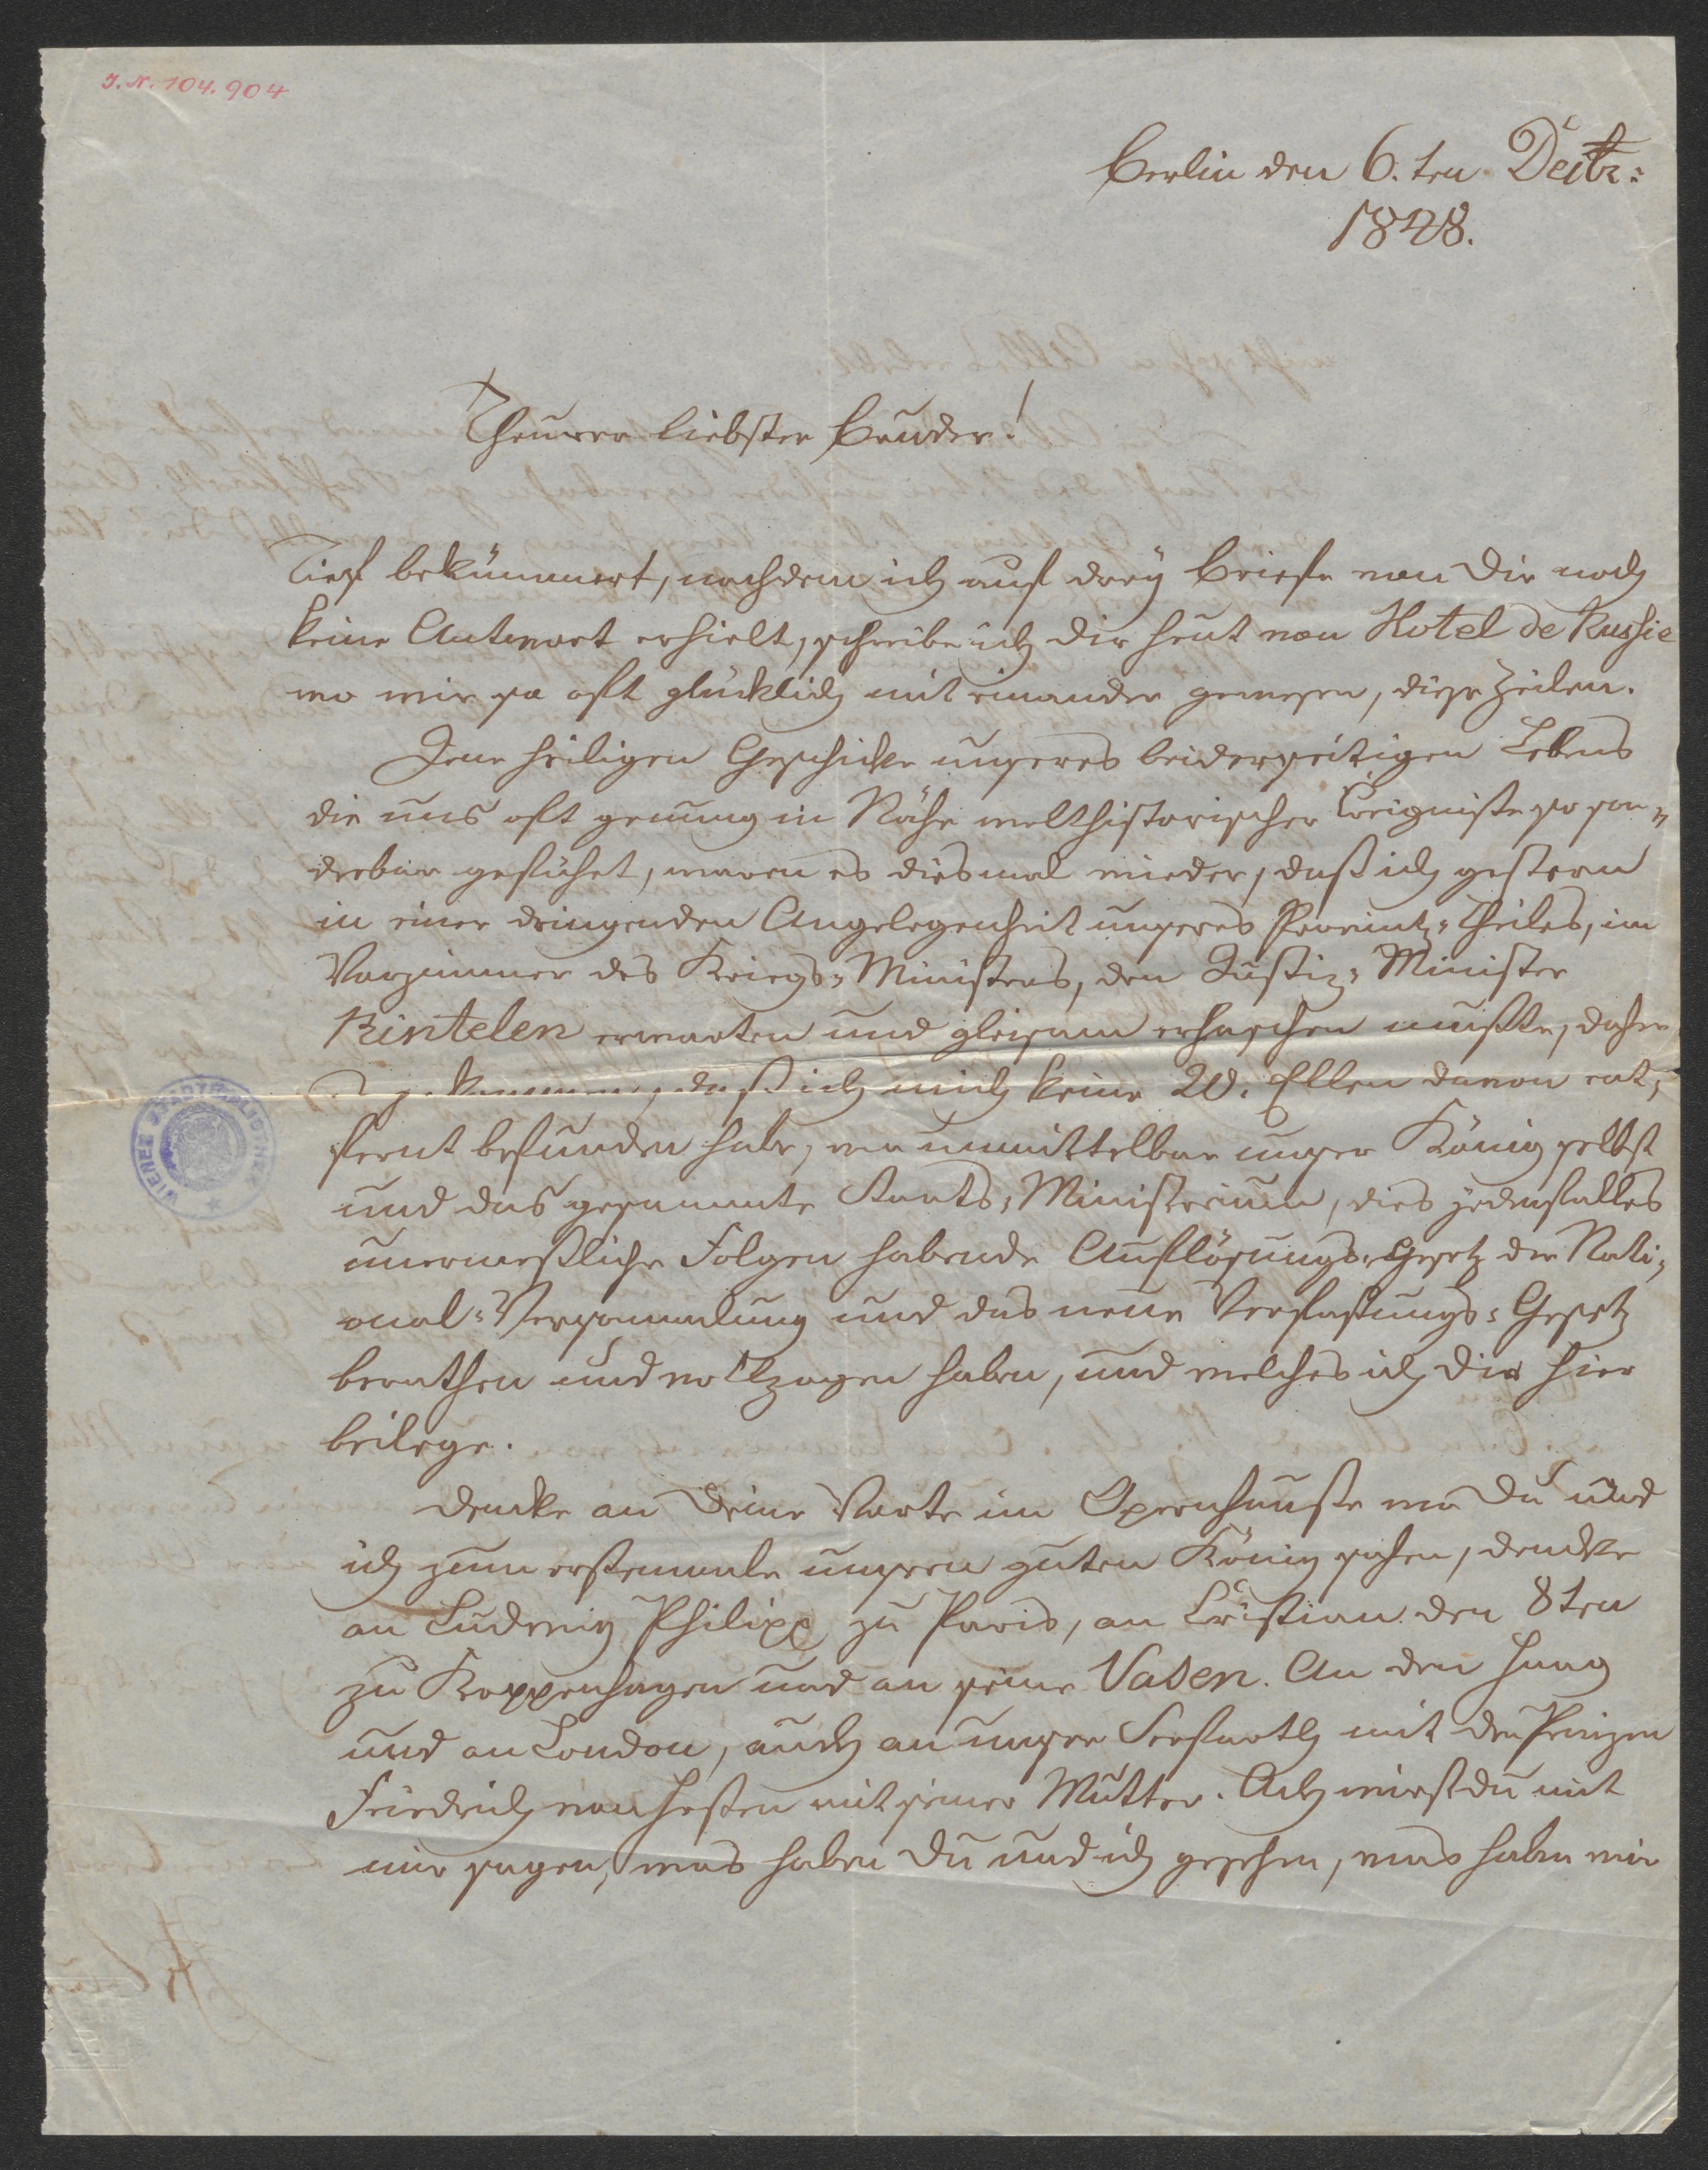 J.N. 104.904
Berlin den 6.ten Decbr:
1848.
Theurer liebster Bruder!
Tief bekümmert, nachdem ich auf drey Briefe von Dir noch
keine Antwort erhielt, schreibe ich Dir heut von Hotel de Russie
wo wir so oft glücklich mit einander gewesen, diese Zeilen.
Jene heiligen Geschicke unseres beiderseitigen Lebens
die uns oft genung in Nähe welthistorischer Ereigniße so son-
derbar geführt, waren es diesmal wieder, daß ich gestern
in einer dringenden Angelegenheit unseres Provintz-Theiles, im
Vorzimmer des Kriegs-Ministers, den Justiz-Minister
Rintelen erwarten und gleisam erhaschen mußte, daher
gekommen, daß ich mich keine 20. Ellen davon ent-
fernt befunden habe, wo unmittelbar unser König selbst
und das gesammte Staats-Ministerium, dies jedenfalles
unermeßliche Folgen habende Auflösungs-Gesetz der Nati-
onal-Versammlung und das neue Verfaßungs-Gesetz
berathen und vollzogen haben, und welches ich Dir hier
beilege.
Dencke an Deine Worte im Opernhauße wo Du und
ich zum erstenmale unseren guten König sahen, dencke
an Ludewig Philipp zu Paris, an Cristian den 8ten
zu Koppenhagen und an seine Vasen. An den Haag
und an London, auch an unsere Seefarth mit den Prinzen
Friedrich von Heßen mit seiner Mutter. Ach wirst Du mit
mir sagen, was haben Du und ich gesehen, was haben wir
WIENER STADTBIBLIOTHEK